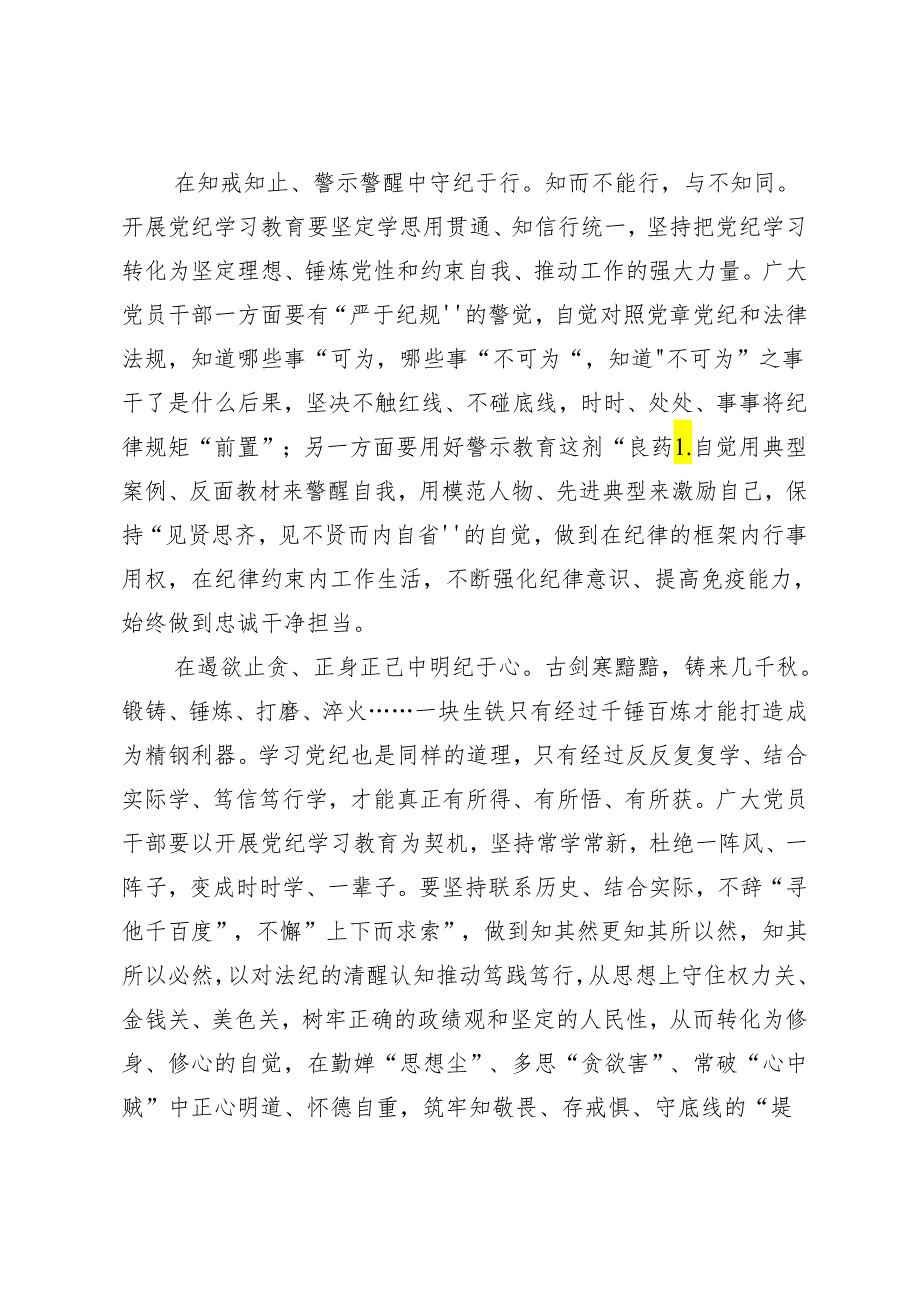 在知戒知止、警示警醒中守纪于行。知而不能行，与不知同。
开展党纪学习教育要坚定学思用贯通、知信行统一，坚持把党纪学习
转化为坚定理想、锤炼党性和约束自我、推动工作的强大力量。广大
党员干部一方面要有“严于纪规''的警觉，自觉对照党章党纪和法律
法规，知道哪些事“可为，哪些事“不可为“，知道"不可为”之事
干了是什么后果，坚决不触红线、不碰底线，时时、处处、事事将纪
律规矩“前置”；另一方面要用好警示教育这剂“良药1.自觉用典型
案例、反面教材来警醒自我，用模范人物、先进典型来激励自己，保
持“见贤思齐，见不贤而内自省''的自觉，做到在纪律的框架内行事
用权，在纪律约束内工作生活，不断强化纪律意识、提高免疫能力，
始终做到忠诚干净担当。
在遏欲止贪、正身正己中明纪于心。古剑寒黯黯，铸来几千秋。
锻铸、锤炼、打磨、淬火……一块生铁只有经过千锤百炼才能打造成
为精钢利器。学习党纪也是同样的道理，只有经过反反复复学、结合
实际学、笃信笃行学，才能真正有所得、有所悟、有所获。广大党员
干部要以开展党纪学习教育为契机，坚持常学常新，杜绝一阵风、一
阵子，变成时时学、一辈子。要坚持联系历史、结合实际，不辞“寻
他千百度”，不懈”上下而求索”，做到知其然更知其所以然，知其
所以必然，以对法纪的清醒认知推动笃践笃行，从思想上守住权力关、
金钱关、美色关，树牢正确的政绩观和坚定的人民性，从而转化为修
身、修心的自觉，在勤婵“思想尘”、多思“贪欲害”、常破“心中
贼”中正心明道、怀德自重，筑牢知敬畏、存戒惧、守底线的“堤